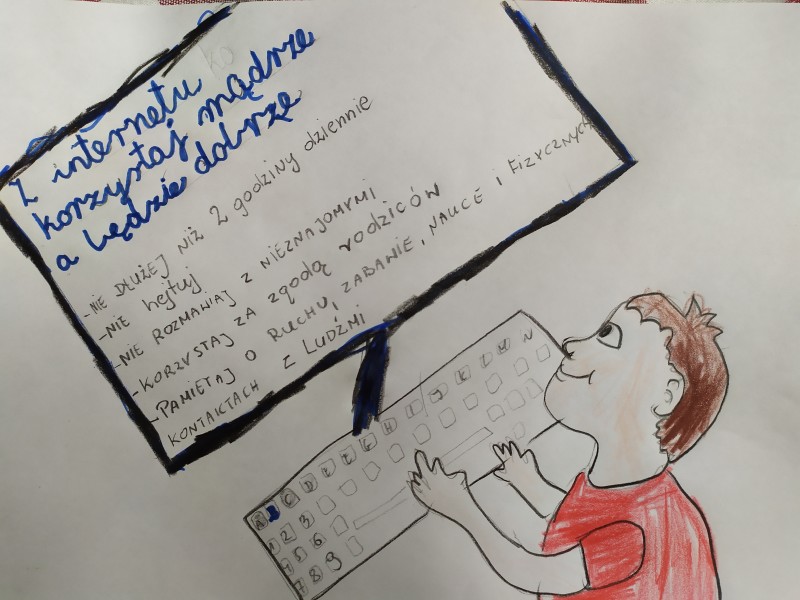 Z internetu
korzystaj mądrze
a będzie dobrze
- NIE DŁUŻEJ NIŻ 2 godziny dziennie
- NIE hejtuj
- NIE ROZMAWIAJ Z NIEZNAJOMYMI
- KORZYSTAJ ZA zgodą rodziców
- PAMIĘTAJ O RUCHU, ZABAWIE, NAUCE i Fizycznych
KONTAKTACH Z LUDŹMI
A B C D E F G H I J K L M N
1 2 3
4 5 6
7 8 9